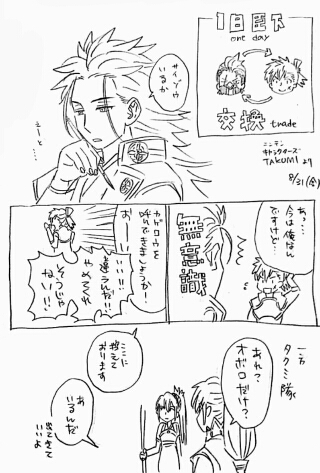 1日臣下
one day
交換 trade
ニンテン
キャラクターズ
TAKUMI 27
8/31(金)
サイゾウ
いるか
えーと…
あっ…
今は俺なん
ですけど…
無意識
カゲロウを
呼んできましょうか!
お…
おい!!
違うんだ!!
やめてくれ
そうじゃ
ねい!!
一方
タクミ隊
あれ?
オボロだけ?
ここに
控えて
おります
あ
いるんだ
出てきて
いいよ